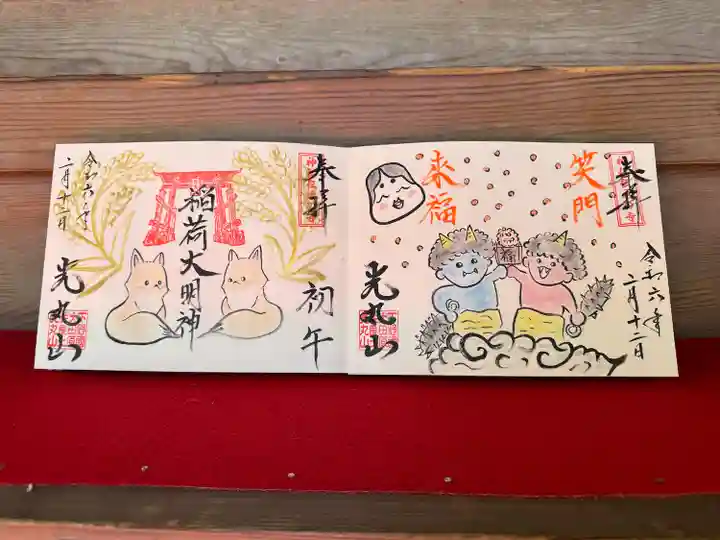 奉拝
初午
稲荷大明神
令和六年
二月十二日
光丸山
奉拝
令和六年
二月十二日
笑門
来福
福
光丸山